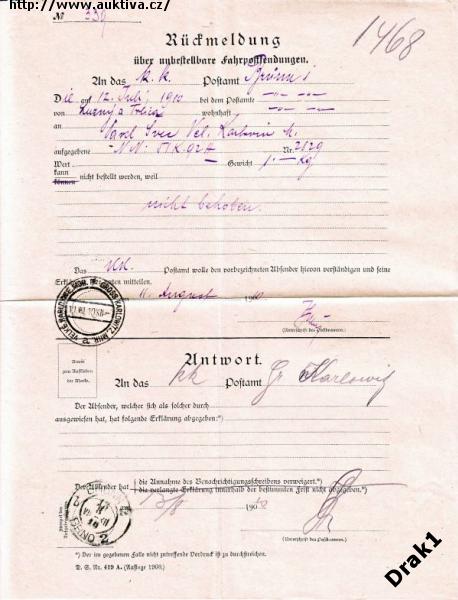 http://www.auktiva.cz/
№ 339
1468
Rückmeldung
über unbestellbare Fahrpostsendungen.
An das k. k. Postamt Brünn 1
Die am 12. Juli 1910 bei dem Postamte -"- -"-
von wohnhaft -"- -"-
an Karl Vel. Karlovic M.
aufgegebene NN. K 92 h Nr. 2129
Wert Gewicht 1.- Kg
kann
können nicht bestellt werden, weil
nicht behoben.
Das kk. Postamt wolle den vorbezeichneten Absender hievon verständigen und seine
mitteilen.
11. August 1910
(Unterschrift des Postbeamten.)
GROSS KARLOWITZ MHR. VELKÉ KARLOVICE
Antwort.
Raum
zum Aufkleben
der Marke.
An das kk Postamt Gr Karlowitz
Der Absender, welcher sich als solcher durch
ausgewiesen hat, hat folgende Erklärung abgegeben:*)
Der Absender hat die Annahme des Benachrichtigungsschreibens verweigert.*)
die verlangte Erklärung innerhalb der bestimmten Frist nicht abgegeben.*)
190
(Unterschrift des Postbeamten.)
BRNO 2
*) Der im gegebenen Falle nicht zutreffende Vordruck ist zu durchstreichen.
D. S. Nr. 419 A. (Auflage 1908.)
Drak1